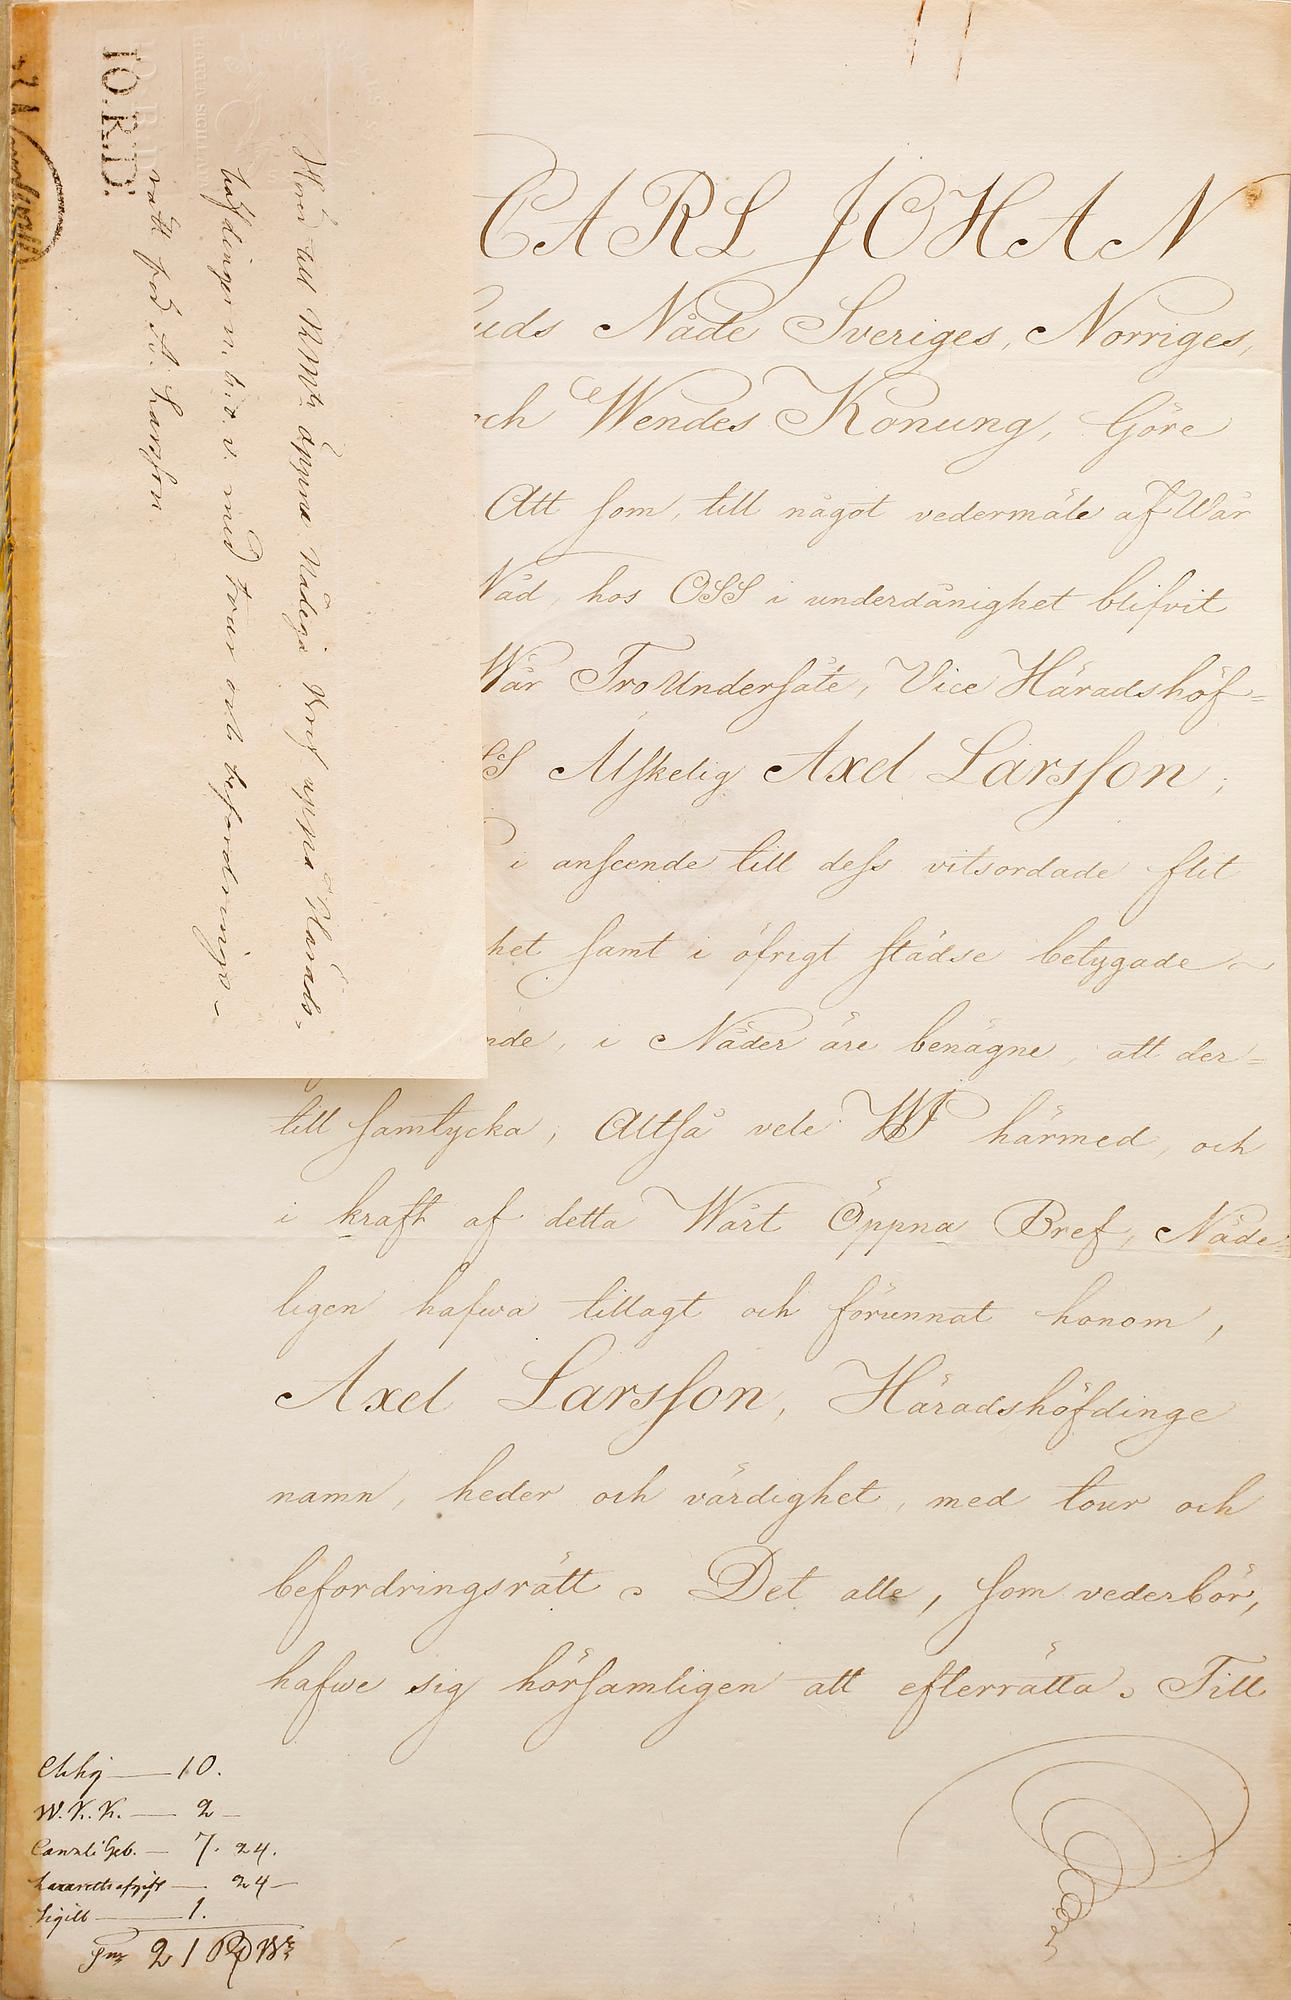 CARL JOHAN
uds Nåde Sveriges, Norriges,
och Wendes Konung, Göre
Att som, till något vedermäle af Wår
Nåd, hos OSS i underdånighet blifvit
Wår Tro Undersåte, Vice Häradshöf=
SS Älskelig Axel Larsson,
i anseende till dess vitsordade flit
het samt i öfrigt städse betygade
nde, i Nåder äre benägne, att der=
till samtycka, Altså vele WJ härmed, och
i kraft af detta Wårt Öppna Bref, Nåde=
ligen hafwa tillagt och förunnat honom,
Axel Larsson, Häradshöfdinge
namn, heder och värdighet, med tour och
befordringsrätt. Det alle, som vederbör,
hafwe sig hörsamligen att efterrätta. Till
10.R.D.
HARTA SIGILLATA
till KMts öppna Nådiga Bref uppå Härads=
höfdinge n. h. o. v. med tour och befordrings-
rätt för A. Larsson.
Chkg — 10.
W.K.K. — 2 —
Canzli Geb. — 7. 24.
Lazarettsafgift — 24 —
Sigill — 1.
Sm 21 RD